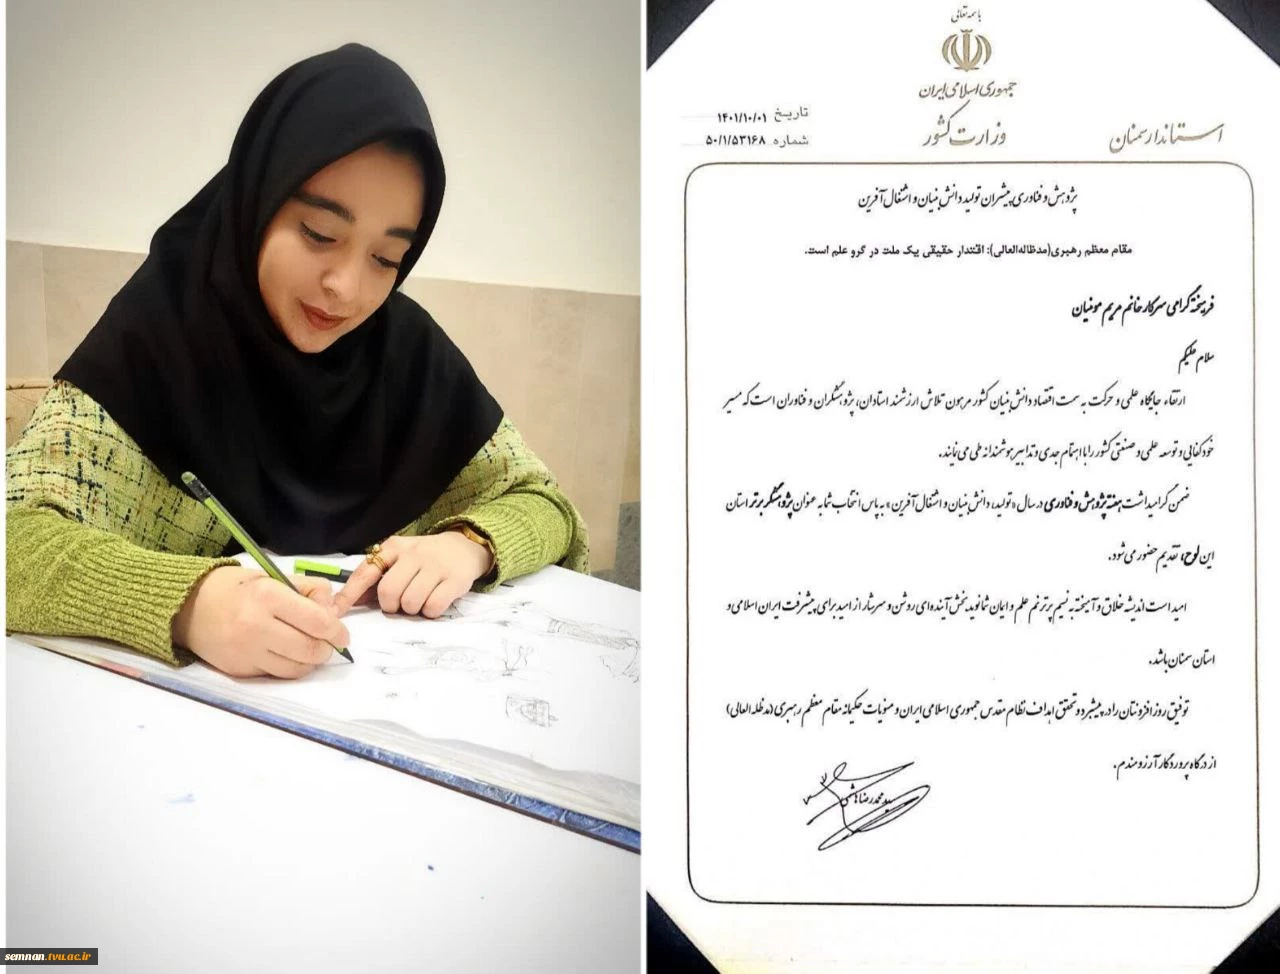 باسمه تعالی
جمهوری اسلامی ایران
وزارت کشور
استاندار سمنان
تاریخ ۱۴۰۱/۱۰/۰۱
شماره ۵۰/۱/۵۳۱۶۸
پژوهش و فناوری پیشران تولید دانش بنیان و اشتغال آفرین
مقام معظم رهبری(مدظله‌العالی): اقتدار حقیقی یک ملت در گرو علم است.
فرهیخته گرامی سرکار خانم مریم مومنیان
سلام علیکم
ارتقاء جایگاه علمی و حرکت به سمت اقتصاد دانش بنیان کشور مرهون تلاش ارزشمند استادان، پژوهشگران و فناوران است که مسیر
خودکفایی و توسعه علمی و صنعتی کشور را با اهتمام جدی و تدابیر هوشمندانه طی می‌نمایند.
ضمن گرامیداشت هفته پژوهش و فناوری در سال «تولید، دانش بنیان و اشتغال آفرین» به پاس انتخاب شما به عنوان پژوهشگر برتر استان
این لوح، تقدیم حضور می‌شود.
امید است اندیشه خلاق و آمیخته به نسیم پرترنم علم و ایمان شما نویدبخش آینده‌ای روشن و سرشار از امید برای پیشرفت ایران اسلامی و
استان سمنان باشد.
توفیق روزافزونتان را در پیشبرد و تحقق اهداف نظام مقدس جمهوری اسلامی ایران و منویات حکیمانه مقام معظم رهبری (مدظله العالی)
از درگاه پروردگار آرزومندم.
سید محمدرضا هاشمی
semnan.tvu.ac.ir